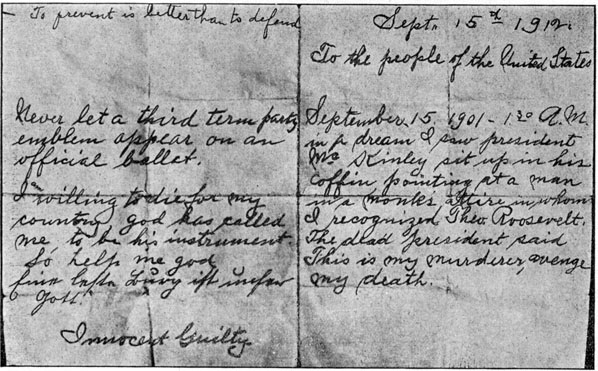 — To prevent is better than to defend
Never let a third term party
emblem appear on an
official ballet.
I willing to die for my
country, god has called
me to be his instrument
So help me god
Eine feste Burg ist unser
Gott."
Innocent Guilty
Sept. 15th 1912.
To the people of the United States
September 15, 1901 - 1:30 A.M.
in a dream I saw president
Mc Kinley sit up in his
coffin pointing at a man
in a monks attire in whom
I recognized Theo. Roosevelt.
The dead president said
This is my murderer, avenge
my death.